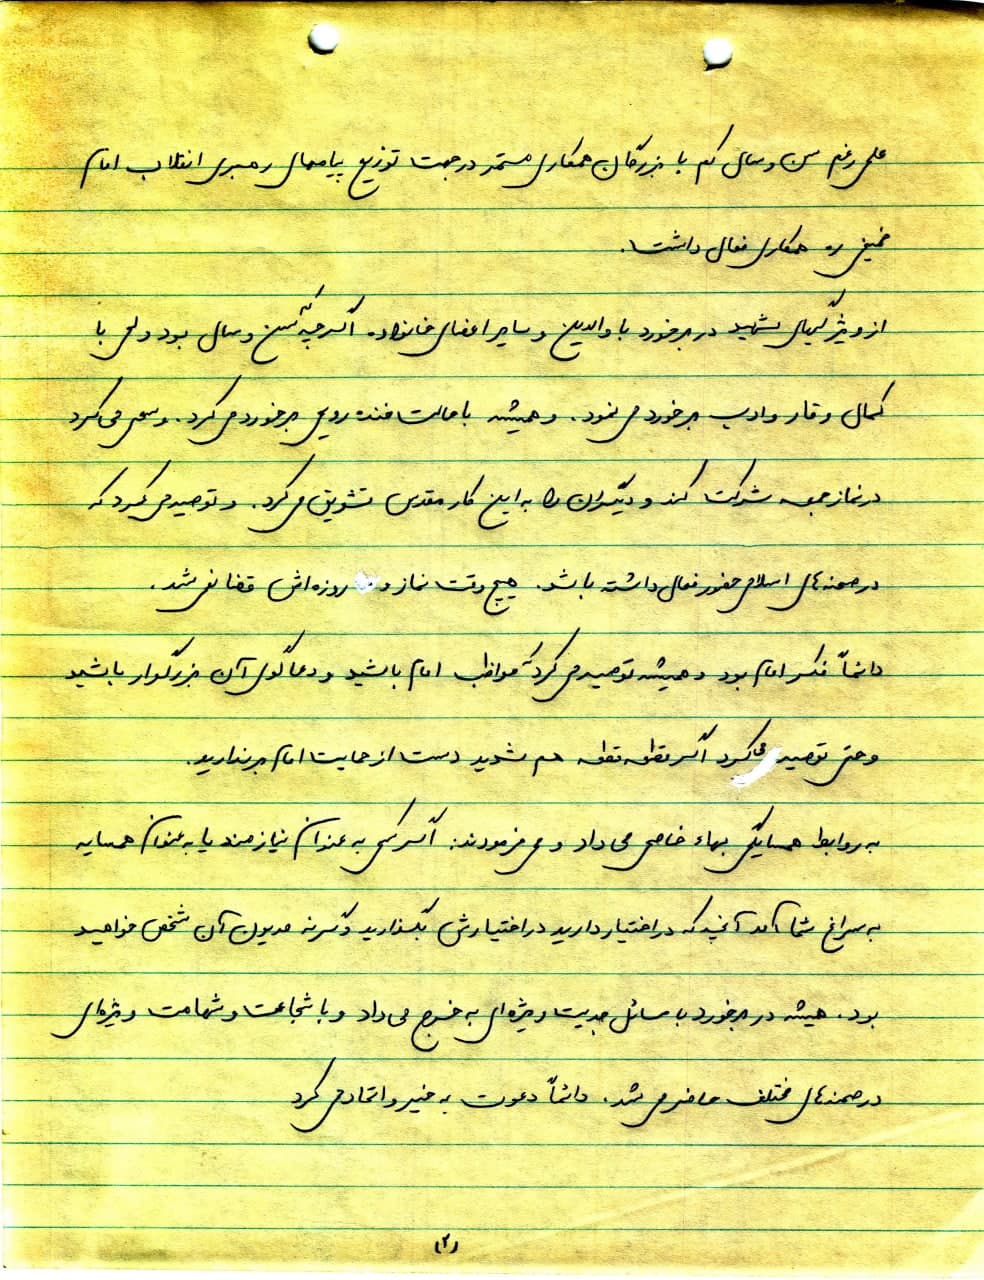 علی رغم سن و سال کم با بزرگان همکاری مستمر در جهت توزیع پیامهای رهبری انقلاب امام
خمینی ره همکاری فعال داشت.
از ویژگیهای شهید در برخورد با والدین و سایر اعضای خانواده. اگر چه کم سن و سال بود ولی با
کمال وقار و ادب برخورد می نمود. و همیشه با حالت خنده رویی برخورد می کرد. و سعی می کرد
در نماز جمعه شرکت کند و دیگران را به این کار مقدس تشویق می کرد. و توصیه می کرد که
در صحنه های اسلامی حضور فعال داشته باشد. هیچ وقت نماز و روزه اش قضا نمی شد.
دائماً فکر امام بود و همیشه توصیه می کرد که مواظب امام باشید و دعاگوی آن بزرگوار باشید
و حتی توصیه می کرد اگر قطعه قطعه هم شدید دست از حمایت امام برندارید.
به روابط همسایگی بهاء خاصی می داد و می فرمودند: اگر کسی به عنوان نیازمند یا به عنوان همسایه
به سراغ شما آمد آنچه که در اختیار دارید در اختیارش بگذارید وگرنه مدیون آن شخص خواهید
بود. همیشه در برخورد با مسائل جدیت ویژه ای به خرج می داد و با شجاعت و شهامت ویژه ای
در صحنه های مختلف حاضر می شد. دائماً دعوت به خیر و اتحاد می کرد
(۲)